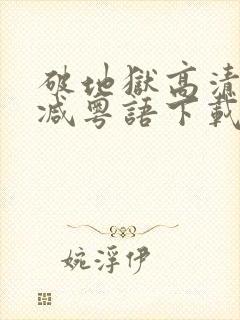 破地獄高清
减粵語下載
婉浮伊